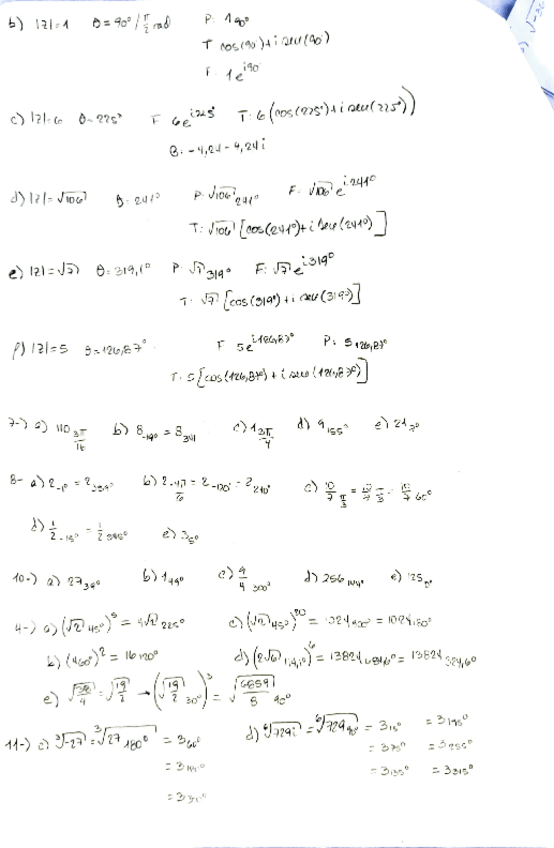 b) |z|=1 θ=90°/π/2 rad P: 1 90°
T cos(90°)+i sen(90°)
F: 1e^i90
c) |z|=6 θ=225° F 6e^i225° T: 6(cos(225°)+i sen(225°))
B: -4,24-4,24i
d) |z|=√106 θ=241° P: √106 241° F: √106 e^i241°
T: √106 [cos(241°)+i sen(241°)]
e) |z|=√7 θ=319,1° P: √7 319° F: √7 e^i319°
T: √7 [cos(319°)+i sen(319°)]
f) |z|=5 θ=126,87° F 5e^i126,87° P: 5 126,87°
T: 5[cos(126,87°)+i sen(126,87°)]
7-) a) 110 3π/16 b) 8 -19° = 8 341 c) 1 3π/4 d) 9 155° e) 21
8- a) 2 -1° = 2 359° b) 2 -4π/6 = 2 -120° = 2 240° c) 10/7 π/3 = 10/7 π/3 = 10/7 60°
d) 1/2 -15° = 1/2 345° e) 3 5°
10-) a) 27 39° b) 1 44° c) 9/4 300° d) 256 e) 125
4-) a) (√2 45°)^5 = 4√2 225° c) (√2 45°)^20 = 1024 900° = 1024 180°
b) (4 60°)^2 = 16 120° d) (2√6)^6 = 13824 684,6° = 13824 324,6°
e) √38/4 = √19/2 → (√19/2 30°)^3 = √6859/8 90°
11-) c) ³√-27 = ³√27 180° = 3 60° d) ⁶√729i = ⁶√729 90° = 3 15° = 3 195°
= 3 180° = 3 75° = 3 255°
= 3 135° = 3 315°